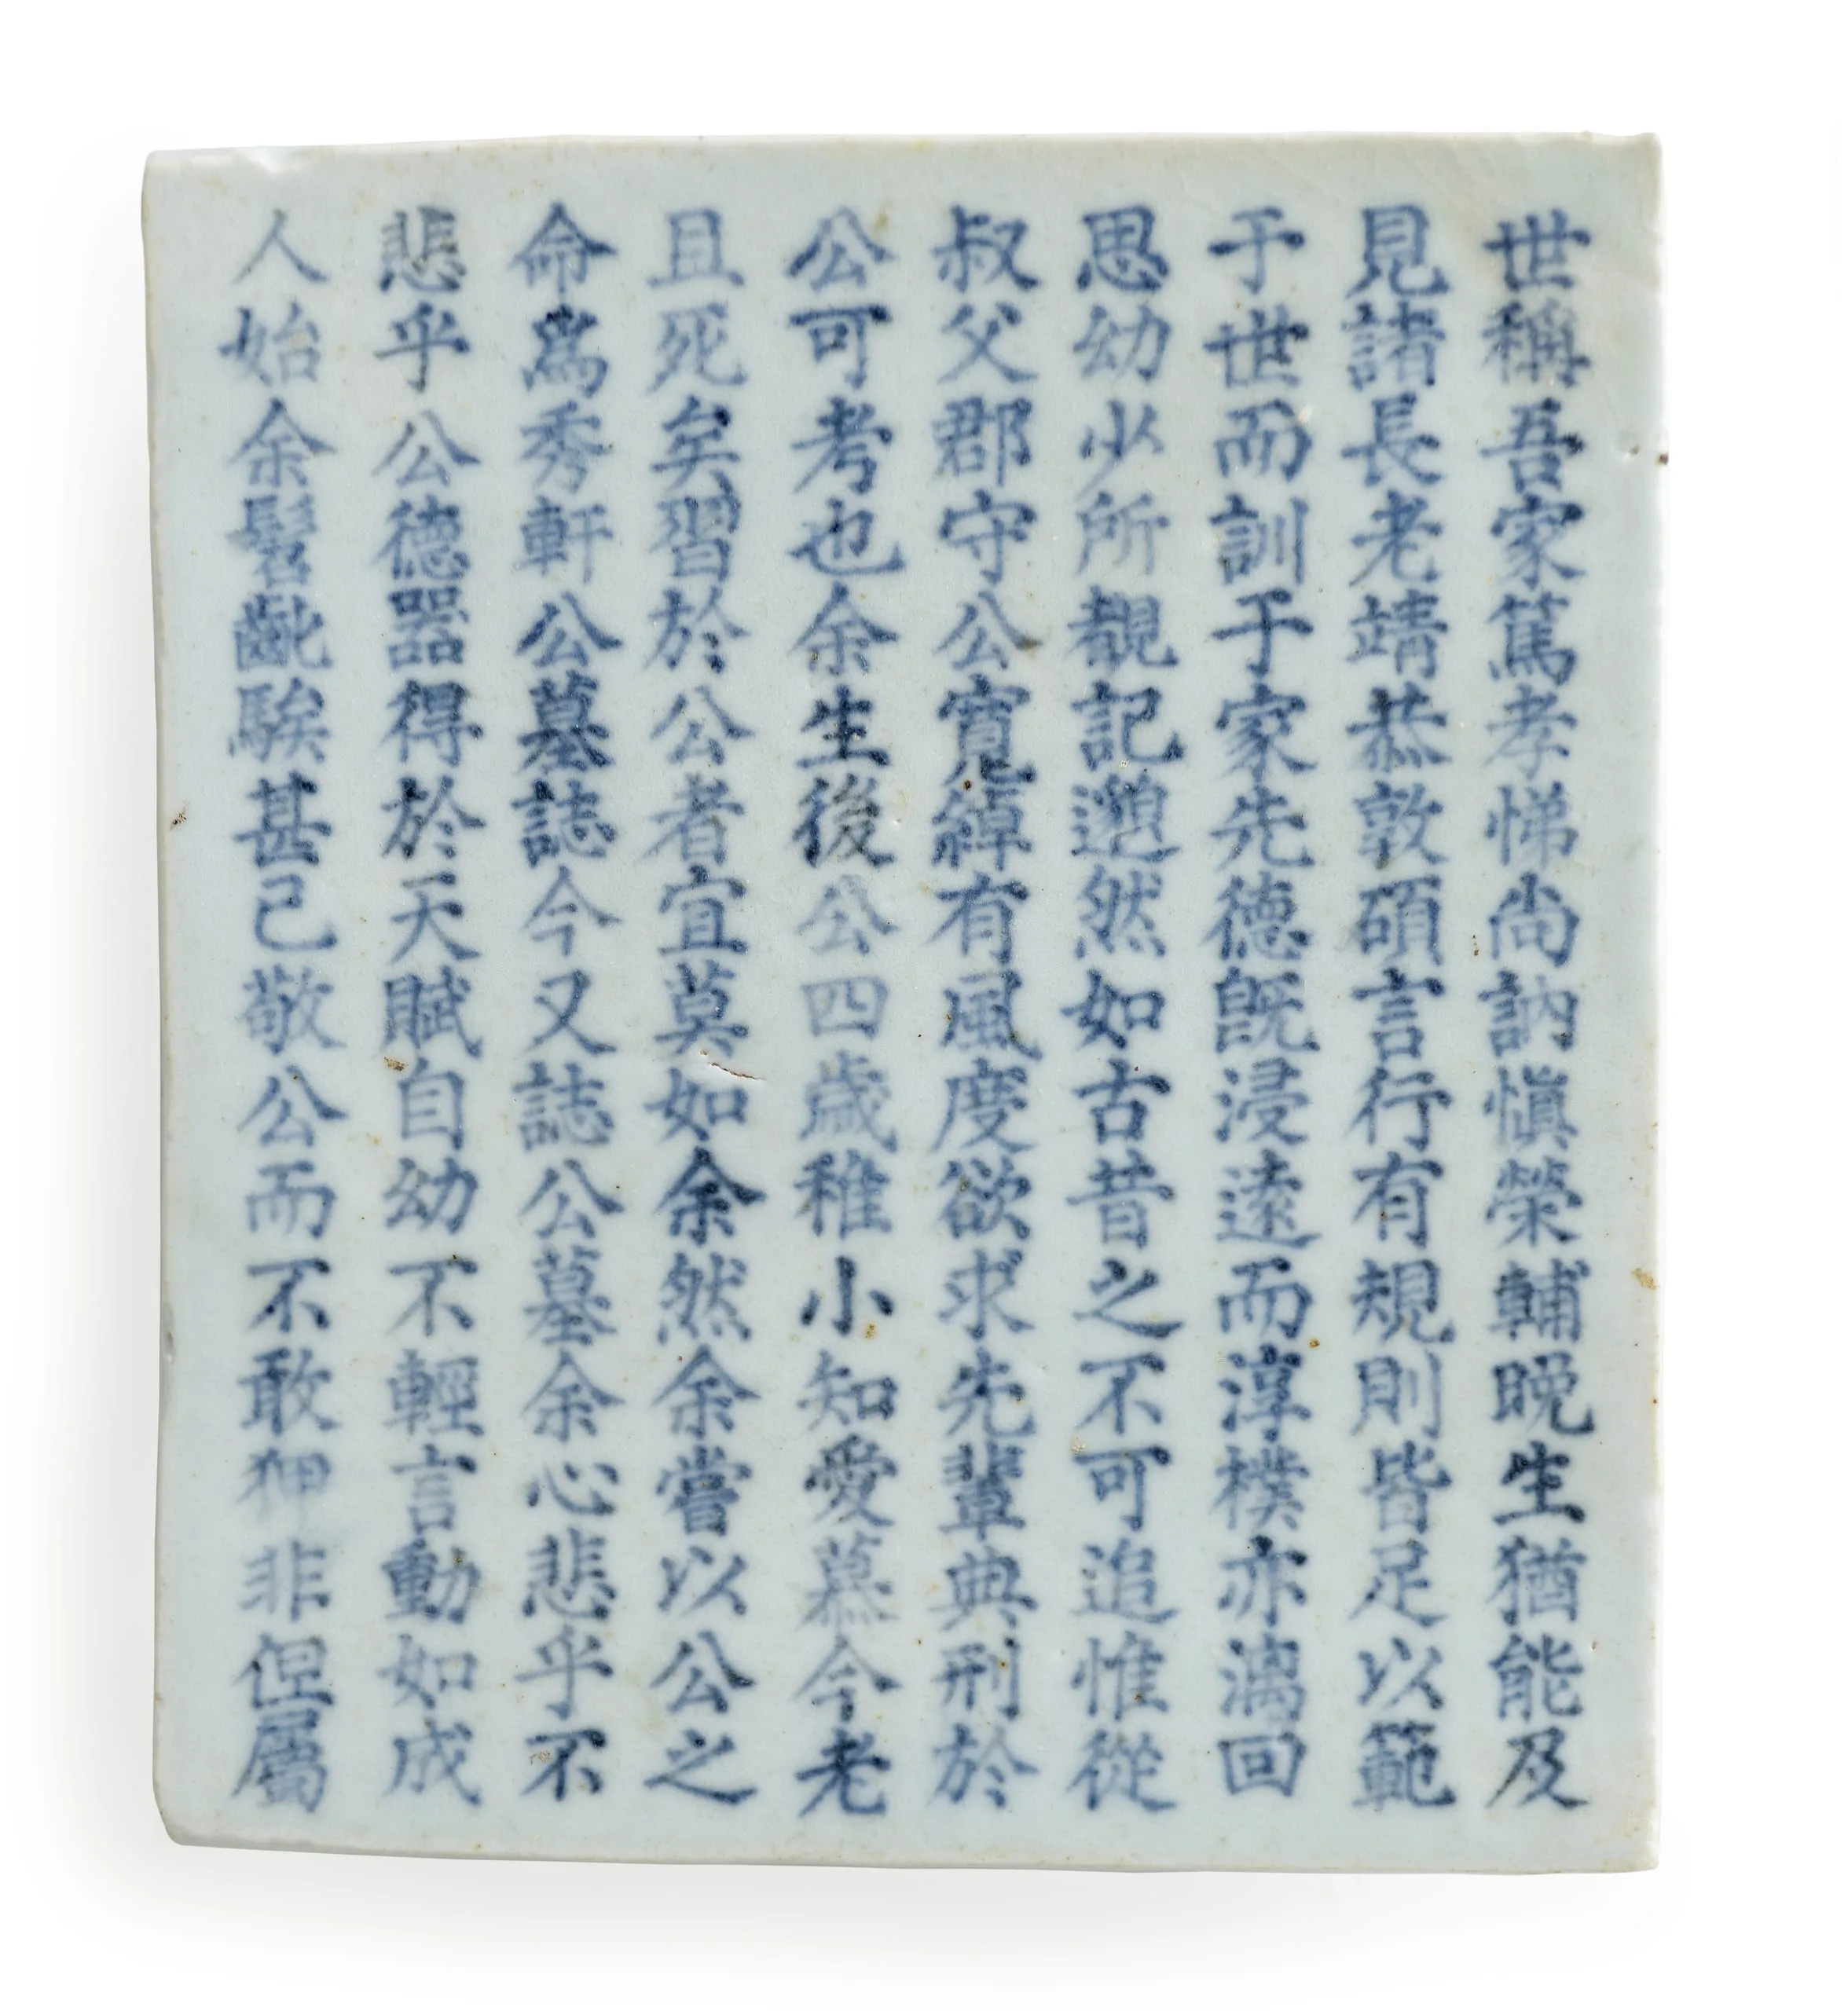 世稱吾家篤孝悌尚訥愼榮輔晚生猶能及
見諸長老靖恭敦碩言行有規則皆足以範
于世而訓于家先德旣浸遠而淳樸亦漓回
思幼少所覩記邈然如古昔之不可追惟從
叔父郡守公寬綽有風度欲求先輩典刑於
公可考也余生後公四歲稚小知愛慕今老
且死矣習於公者宜莫如余然余嘗以公之
命爲秀軒公墓誌今又誌公墓余心悲乎不
悲乎公德器得於天賦自幼不輕言動如成
人始余髫齔騃甚已敬公而不敢狎非但屬